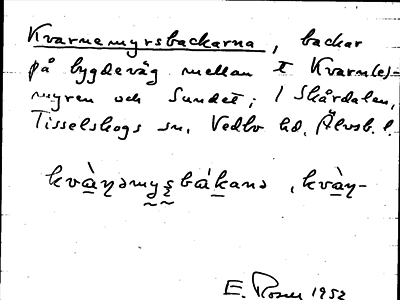 Kvarnemyrsbackarna, backar
på bygdeväg mellan t Kvarn(e)=
myren och Sundet; i Skårdalen,
Tisselskogs sn, Vedbo hd, Älvsb. l.
kvàṇəmyṣbákanə, kvàṇ-
E. Rosén 1952